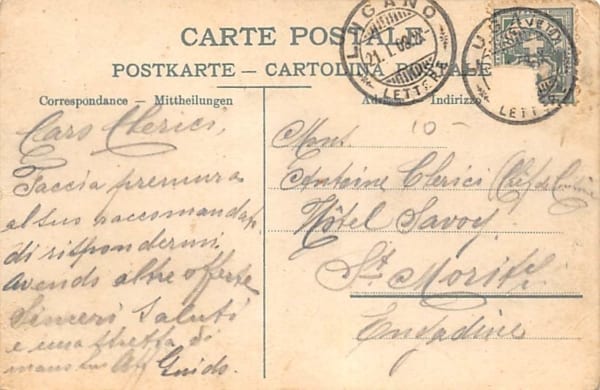 CARTE POSTALE
POSTKARTE - CARTOLINA POSTALE
Correspondance - Mittheilungen
Adresse - Indirizzo
LUGANO
21.I.08
LETTERA
LUGANO
LETTERA
10-
Caro Clerici,
Faccia premura
al suo raccomandat.
di rispondermi
avendo altre offerte
Sinceri saluti
e una stretta di
mano Aff Guido.
Mons.
Antoine Clerici
Hôtel Savoy
St. Moritz
Engadine